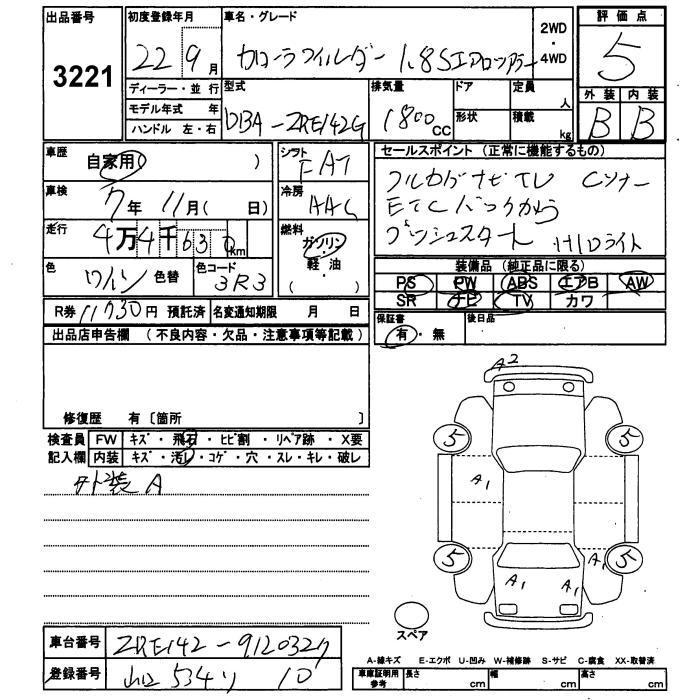 出品番号 3221
初度登録年月 22 9月
車名・グレード カローラフィルダー 1.8S エアロツアラー
2WD ・ 4WD
評価点 5
外装 B 内装 B
ディーラー・並行
モデル年式 年
ハンドル 左・右
型式 DBA-ZRE142G
排気量 1800 CC
ドア
形状
定員 人
積載 kg
車歴 自家用( )
車検 7年 11月( 日)
走行 4万4千630km
色 ワイン 色替
色コード 3R3
シフト FAT
冷房 AAC
燃料 ガソリン・軽油( )
セールスポイント (正常に機能するもの)
フルセグナビTV Cソナー
ETC バックカメラ
プッシュスタート HIDライト
装備品 (純正品に限る)
PS PW ABS エアB AW
SR ナビ TV カワ
R券 11730円 預託済 名変通知期限 月 日
保証書 有・無
後日品
出品店申告欄 (不良内容・欠品・注意事項等記載)
修復歴 有〔箇所 〕
検査員記入欄
FW キズ・飛石・ヒビ割・リペア跡・X要
内装 キズ・汚レ・コゲ・穴・スレ・キレ・破レ
外装A
A2
5 5
A1
5 5
A1
A1 A1
スペア
車台番号 ZRE142-9120327
登録番号 534 ソ 10
A-線キズ E-エクボ U-凹み W-補修跡 S-サビ C-腐食 XX-取替済
車庫証明用参考 長さ cm 幅 cm 高さ cm